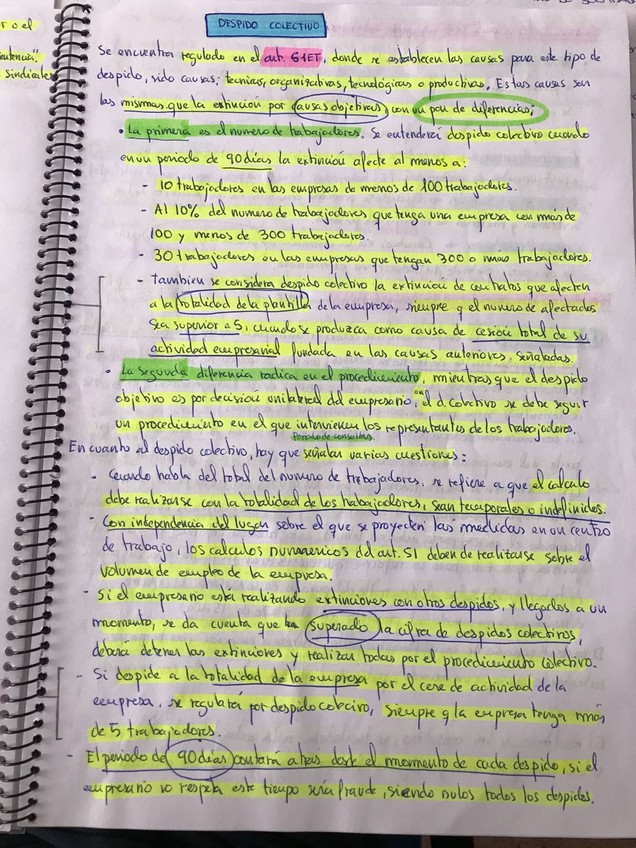 r o el
sindicales
DESPIDO COLECTIVO
Se encuentra regulado en el art. 51ET, donde se establecen las causas para este tipo de
despido, sido causas; tecnicas, organizativas, tecnológicas o productivas. Estas causas son
las mismas que la extincion por causas objetivas con un par de diferencias;
• La primera es el numero de trabajadores. Se entenderá despido colectivo cuando
en un periodo de 90 días la extinción afecte al menos a:
- 10 trabajadores en las empresas de menos de 100 trabajadores.
- Al 10% del numero de trabajadores que tenga una empresa con más de
100 y menos de 300 trabajadores.
- 30 trabajadores en las empresas que tengan 300 o más trabajadores.
- tambien se considera despido colectivo la extinción de contratos que afecten
a la totalidad de la plantilla de la empresa, siempre q el numero de afectados
sea superior a 5, cuando se produzca como causa de cesión total de su
actividad empresarial fundada en las causas anteriores, señaladas.
• La segunda diferencia radica en el procedimiento, mientras que el despido
objetivo es por decisión unilateral del empresario, en el d. colectivo se debe seguir
un procedimiento en el que intervienen los representantes de los trabajadores.
Periodo de consultas
En cuanto al despido colectivo, hay que señalar varias cuestiones:
- Cuando habla del total del numero de trabajadores, se refiere a que el calculo
debe realizarse con la totalidad de los trabajadores, sean temporales o indefinidos.
- Con independencia del lugar sobre el que se proyecten las medidas en un centro
de trabajo, los calculos numericos del art. 51 deben de realizarse sobre el
volumen de empleo de la empresa.
- Si el empresario está realizando extinciones con otros despidos, y llegados a un
momento, se da cuenta que ha superado la cifra de despidos colectivos,
debera detener las extinciones y realizar todas por el procedimiento colectivo.
- Si despide a la totalidad de la empresa por el cese de actividad de la
empresa, se regulará por despido colecivo, siempre q la empresa tenga más
de 5 trabajadores.
- El periodo de 90 días contará atrás desde el momento de cada despido, si el
empresario no respeta este tiempo sería fraude, siendo nulos todos los despidos.